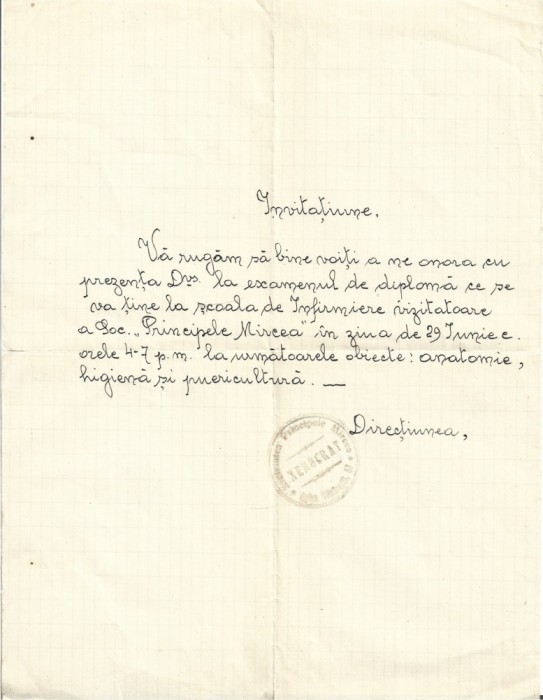 Invitațiune.
Vă rugăm să bine voiți a ne onora cu
prezența Dvs. la examenul de diplomă ce se
va ține la școala de Infirmiere vizitatoare
a Soc. „Principele Mircea" în ziua de 29 Iunie c.
orele 4-7 p.m. la următoarele obiecte: anatomie,
higienă și puericultură. —
Direcțiunea,
Principele Mircea